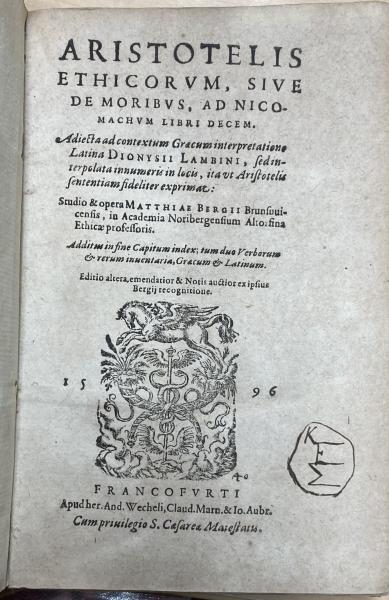 ARISTOTELIS
ETHICORVM, SIVE
DE MORIBVS, AD NICO-
MACHVM LIBRI DECEM.
Adiecta ad contextum Græcum interpretatione
Latina DIONYSII LAMBINI, sed in-
terpolata innumeris in locis, ita vt Aristotelis
sententiam fideliter exprimat:
Studio & opera MATTHIAE BERGII Brunsvui-
censis, in Academia Noribergensium Altorfina
Ethicæ professoris.
Additus in fine Capitum index, tum duo Verborum
& rerum inuentaria, Græcum & Latinum.
Editio altera, emendatior & Notis auctior ex ipsius
Bergij recognitione.
15 96
FRANCOFVRTI
Apud her. And. Wecheli, Claud. Marn. & Io. Aubr.
Cum priuilegio S. Cæsareæ Maiestatis.